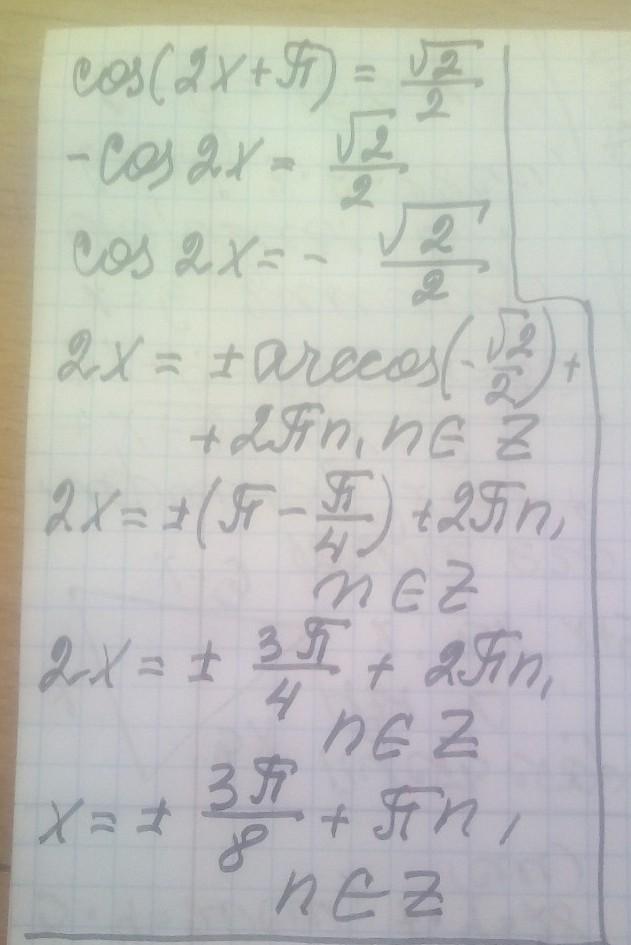 cos(2x+π) = √2/2
-cos 2x = √2/2
cos 2x = - √2/2
2x = ± arccos(-√2/2) +
+ 2πn, n ∈ Z
2x = ±(π - π/4) + 2πn,
n ∈ Z
2x = ± 3π/4 + 2πn,
n ∈ Z
x = ± 3π/8 + πn,
n ∈ Z